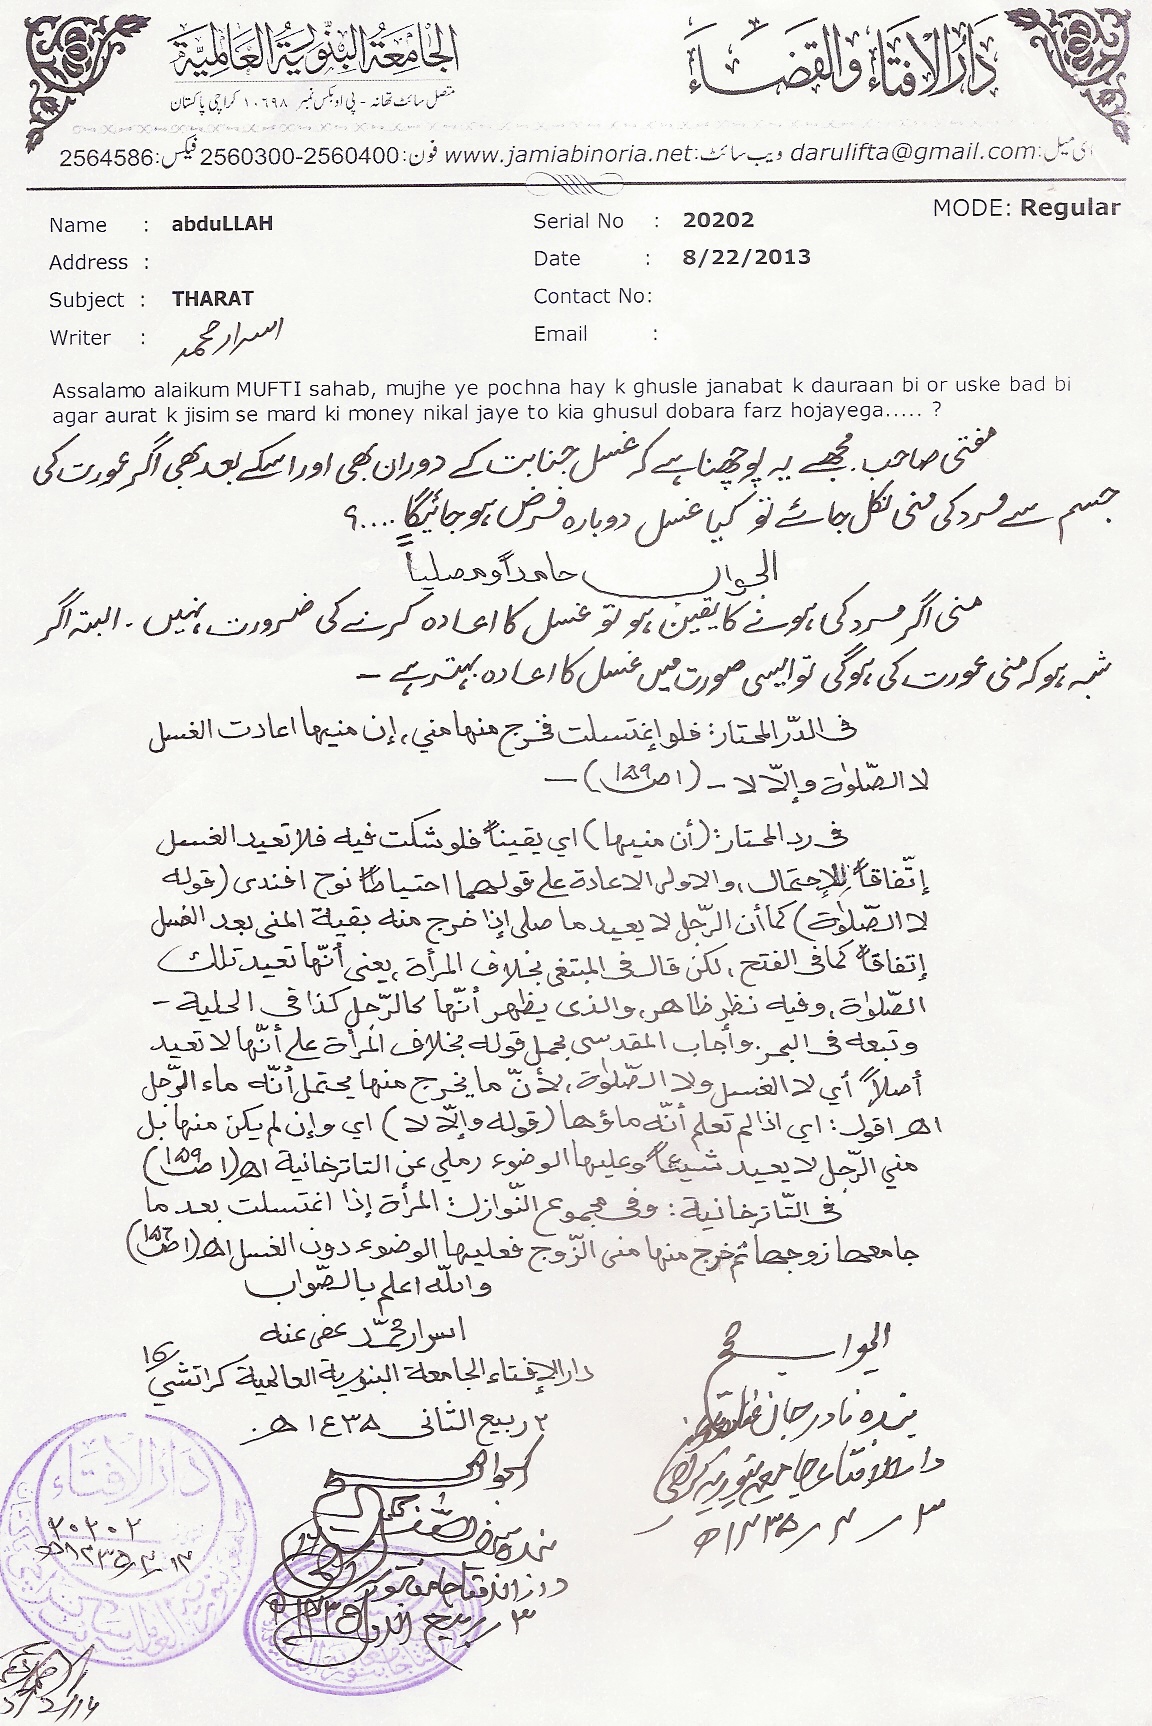 دَارُ الافتاء والقضاء
الجامعۃ البنّوریۃ العالمیّۃ
متصل سائٹ تھانہ - پی او بکس نمبر ۱۰۶۹۸ کراچی پاکستان
ای میل:darulifta@gmail.com ویب سائٹ:www.jamiabinoria.net فون:2560300-2560400 فیکس:2564586
MODE: Regular
Name : abduLLAH
Serial No : 20202
Address :
Date : 8/22/2013
Subject : THARAT
Contact No:
Writer : اسرار محمد
Email :
Assalamo alaikum MUFTI sahab, mujhe ye pochna hay k ghusle janabat k dauraan bi or uske bad bi
agar aurat k jisim se mard ki money nikal jaye to kia ghusul dobara farz hojayega..... ?
مفتی صاحب. مجھے یہ پوچھنا ہے کہ غسل جنابت کے دوران بھی اور اسکے بعد بھی اگر عورت کی
جسم سے مرد کی منی نکل جائے تو کیا غسل دوبارہ فرض ہو جائیگا ....؟
الجواب حامداً و مصلیاً
منی اگر مرد کی ہونے کا یقین ہو تو غسل کا اعادہ کرنے کی ضرورت نہیں ۔ البتہ اگر
شبہ ہو کہ منی عورت کی ہوگی تو ایسی صورت میں غسل کا اعادہ بہتر ہے ۔
فی الدّر المختار: فلو إغتسلت فخرج منها مني، إن منيها اعادت الغسل
لا الصّلوٰة وإلّا لا ۔ (۱ ص۱۵۹) ۔
فی رد المحتار: (أن منيها) اي يقيناً فلو شكت فيه فلا تعيد الغسل
إتّفاقاً للإحتمال، والاولى الاعادة على قولهما احتياطاً نوح افندى (قوله
لا الصّلوٰة) كما أن الرّجل لا يعيد ما صلى إذا خرج منه بقية المنى بعد الغسل
إتفاقاً كما فى الفتح، لكن قال فى المبتغى بخلاف المرأة، يعنى أنّها تعيد تلك
الصّلوٰة، وفيه نظر ظاهر، والذى يظهر أنّها كالرّجل كذا فى الحلية ۔
وتبعه فى البحر. وأجاب المقدسى بحمل قوله بخلاف المرأة على أنّها لا تعيد
أصلاً أي لا الغسل ولا الصّلوٰة، لأنّ ما يخرج منها يحتمل أنّه ماء الرّجل
اھ اقول: اي اذا لم تعلم أنّه ماؤها (قوله وإلّا لا) اي وإن لم يكن منها بل
مني الرّجل لا يعيد شيئاً وعليها الوضوء رملي عن التاترخانية اھ (۱ ص۱۵۹)
فى التّاترخانية: وفى مجموع النّوازل: المرأة إذا اغتسلت بعد ما
جامعها زوجها ثم خرج منها منى الزّوج فعليها الوضوء دون الغسل اھ (۱ ص۱۵۶)
واللّه اعلم بالصّواب
اسرار محمّد عفى عنه
دار الإفتاء الجامعة البنورية العالمية كراتشي
۱۶
۲ ربیع الثانی ۱۴۳۵ھ
الجواب صحیح
بندہ نادر جان
دار الافتاء جامعہ بنوریہ کراچی
۳ ۔ ۴ ۔ ۱۴۳۵ھ
الجواب صحیح
دار الافتاء
۲۰۲۰۲